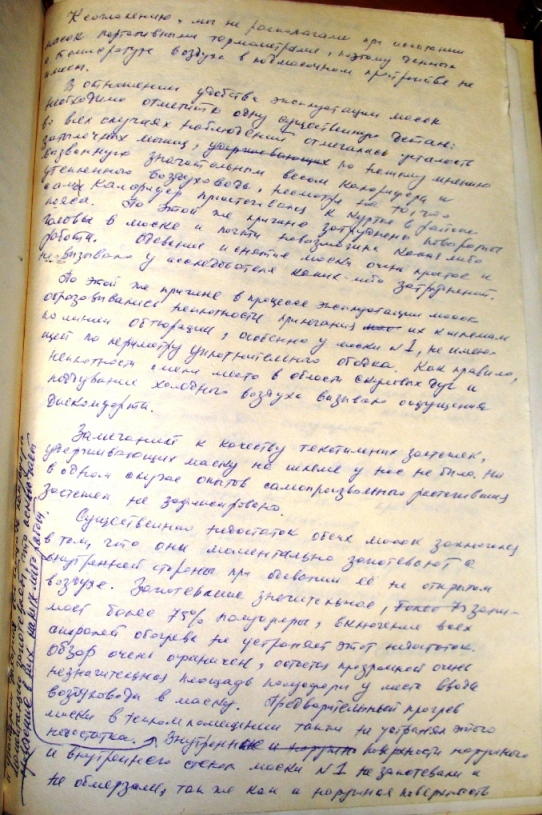 К сожалению, мы не располагали при испытании
масок портативными термометрами, поэтому данных
о температуре воздуха в подмасочном пространстве не
имеем.
В отношении удобства эксплуатации масок
необходимо отметить одну существенную деталь:
во всех случаях наблюдений отмечалась усталость
затылочных мышц, по нашему мнению
вызванную значительным весом калорифера и
утепленного воздуховода, несмотря на то, что
сам калорифер пристегивался к куртке в районе
пояса. По этой же причине затруднены повороты
головы в маске и почти невозможна какая-либо
работа. Одевание и снятие маски очень простое и
не вызывало у исследователя каких-либо затруднений.
По этой же причине в процессе эксплуатации масок
образовывались неплотности прилегания их к шлемам
по линии обтюрации, особенно у маски №1, не имею-
щей по периметру уплотнительного ободка. Как правило,
неплотности имели место в области скуловых дуг и
поддувание холодного воздуха вызывало ощущение
дискомфорта.
Замечаний к качеству текстильных застежек,
удерживающих маску на шлеме у нас не было. Ни
в одном случае опытов самопроизвольного расстегивания
застежек не зафиксировано.
Существенный недостаток обеих масок заключается
в том, что они моментально запотевают с
внутренней стороны при дыхании в ней на открытом
воздухе. Запотевание значительное, зани-
мает более 75% полусферы, включение всех
спиралей обогрева не устраняет этот недостаток.
Обзор очень ограничен, остается прозрачной очень
незначительная площадь полусферы у места ввода
воздуховода в маску. Предварительный прогрев
маски в теплом помещении также не устранял этого
недостатка. Внутренние поверхности наружного
и внутреннего стекол маски №1 не запотевали и
не обмерзали, так же как и наружная поверхность